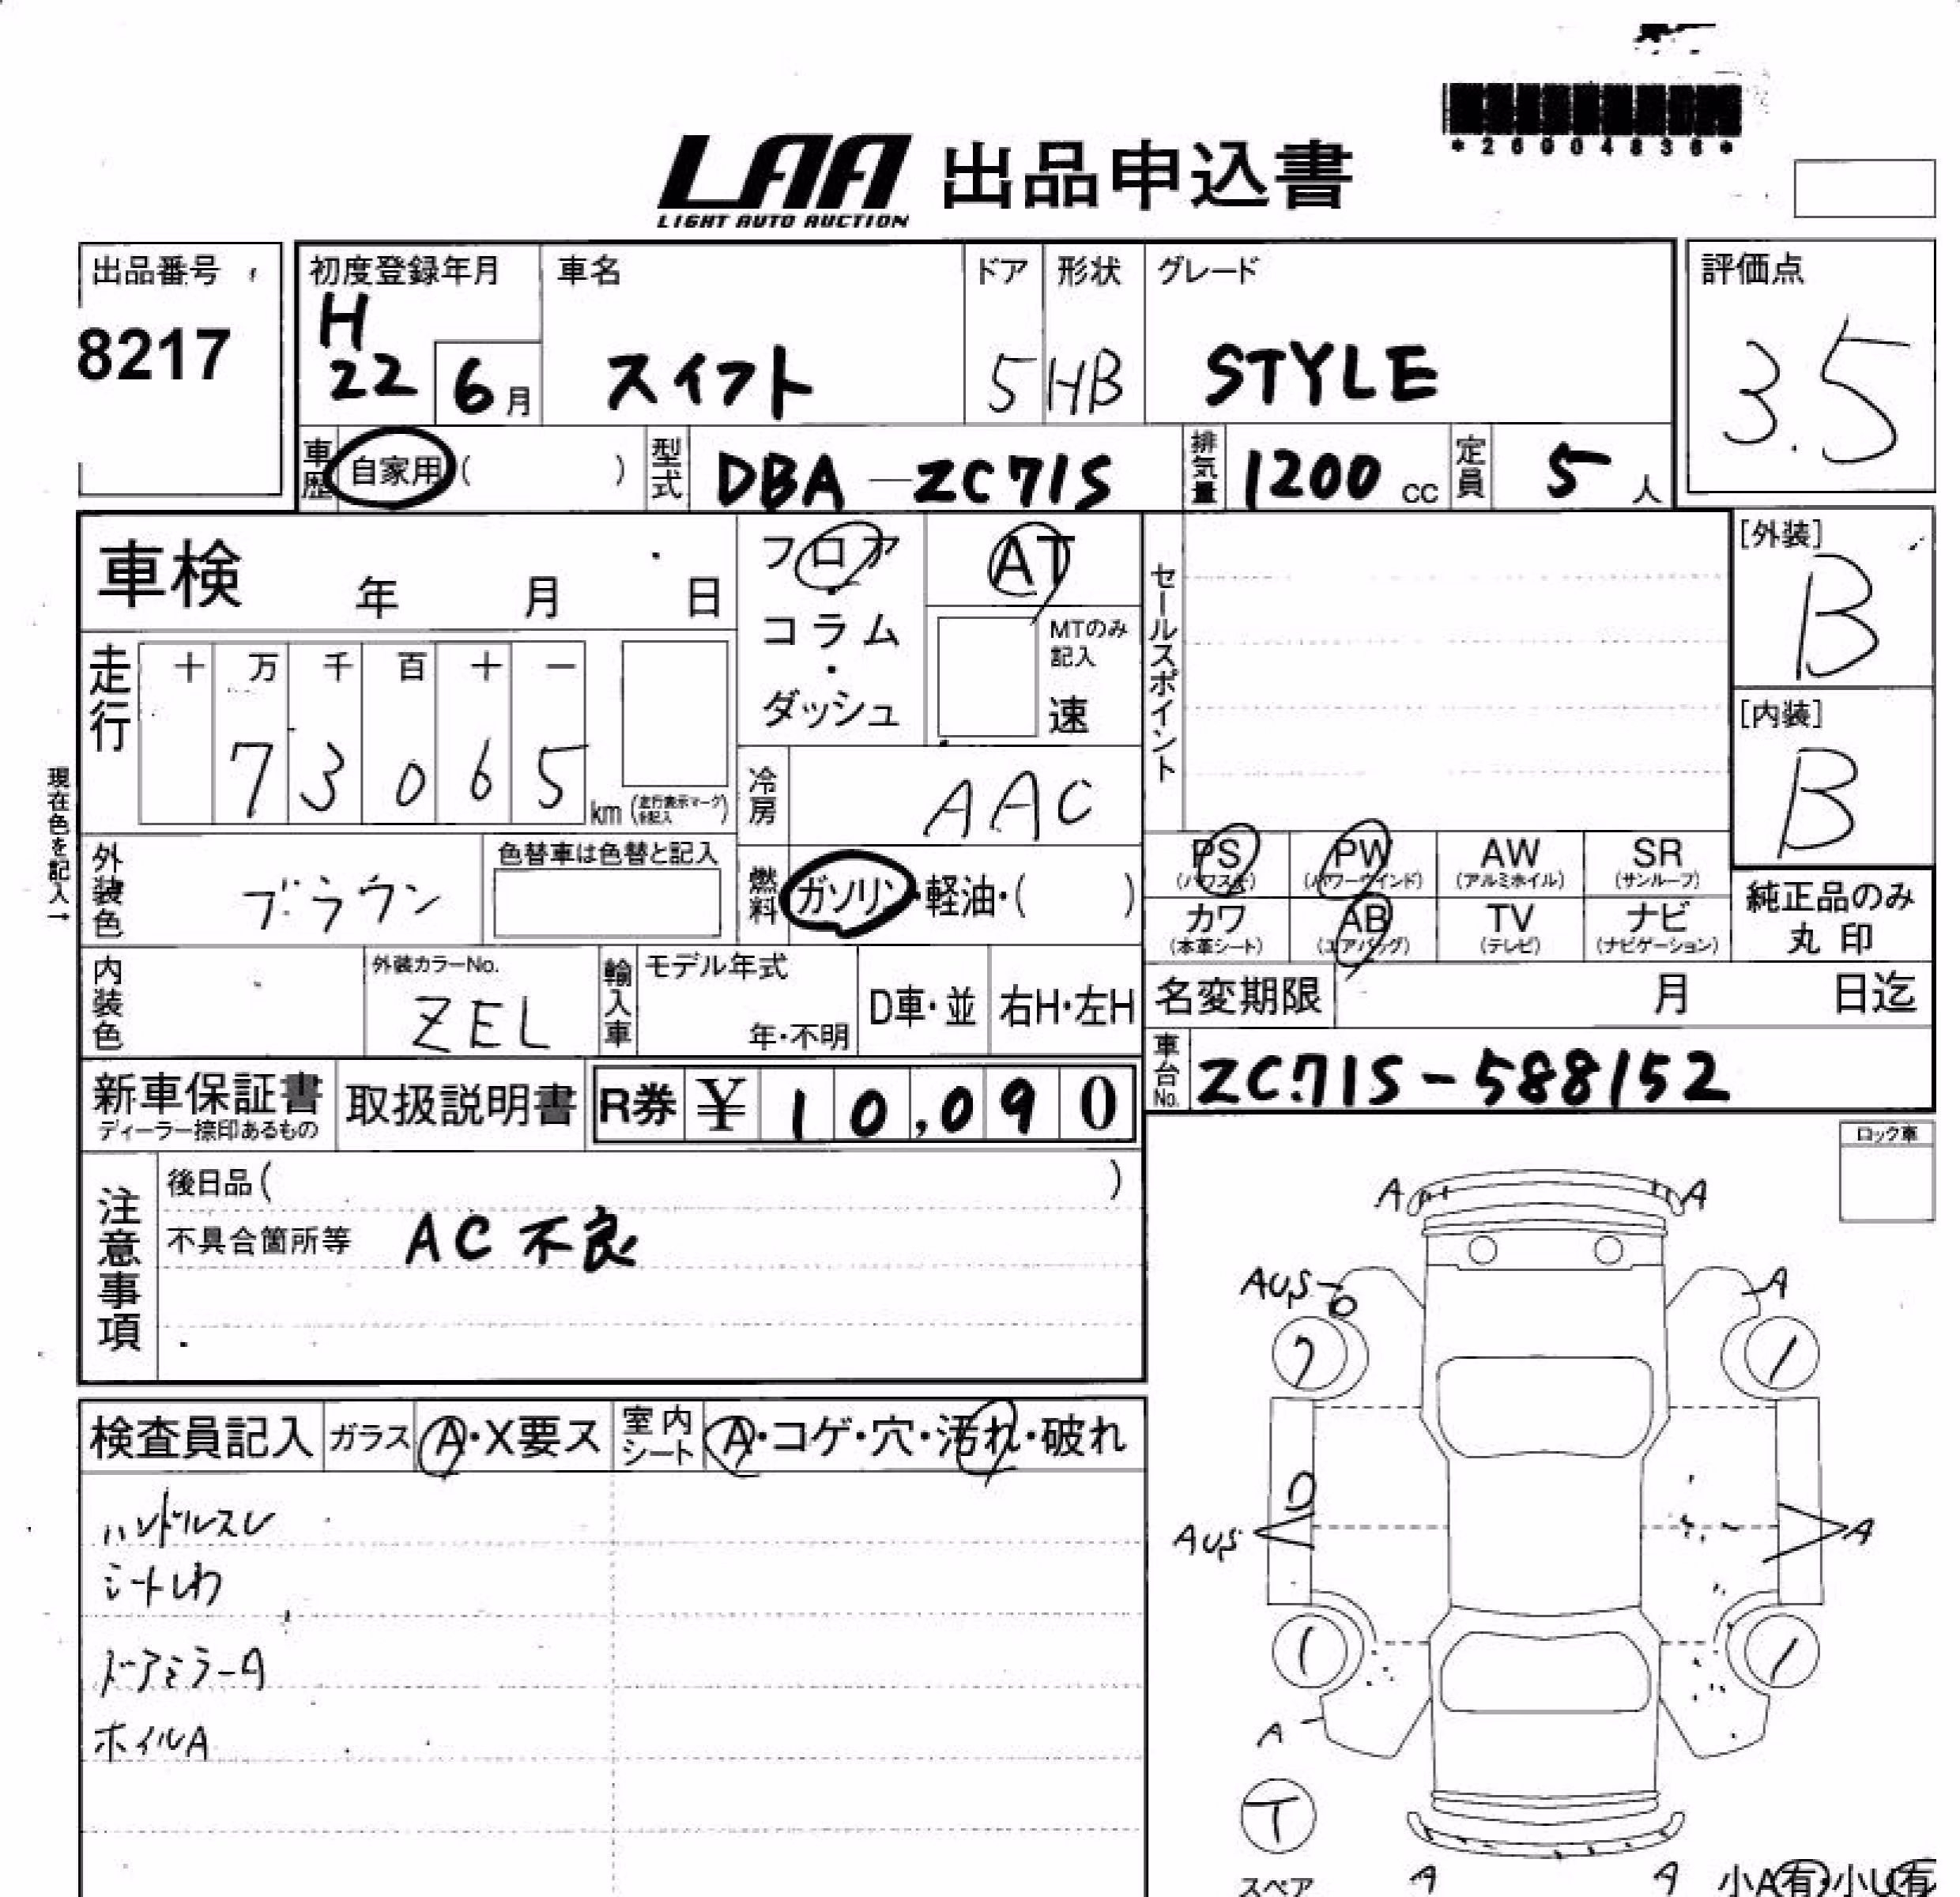 *26904836*
LAA 出品申込書
LIGHT AUTO AUCTION
出品番号
8217
初度登録年月
H
22 6月
車名
スイフト
ドア
5
形状
HB
グレード
STYLE
評価点
3.5
車歴 自家用( )
型式 DBA-ZC71S
排気量 1200 cc
定員 5 人
車検 年 月 日
フロア・コラム・ダッシュ
AT
MTのみ記入
速
セールスポイント
[外装]
B
[内装]
B
走行
十 万 千 百 十 一
7 3 0 6 5 km (走行表示マークを記入)
現在色を記入→
冷房 AAC
外装色 ブラウン
色替車は色替と記入
燃料 ガソリン・軽油・( )
PS (パワステ)
PW (パワーウインド)
AW (アルミホイル)
SR (サンルーフ)
カワ (本革シート)
AB (エアバッグ)
TV (テレビ)
ナビ (ナビゲーション)
純正品のみ
丸印
内装色
外装カラーNo.
ZEL
輸入車
モデル年式
年・不明
D車・並
右H・左H
名変期限 月 日迄
車台No. ZC71S-588152
新車保証書
ディーラー捺印あるもの
取扱説明書
R券 ¥ 10,090
注意事項
後日品( )
不具合箇所等 AC不良
ロック車
検査員記入
ガラス A・X要ス
室内シート A・コゲ・穴・汚れ・破れ
ハンドルスレ
シートしわ
ドアミラーA
ホイルA
A
A
A
7
1
D
A
1
1
A
T
スペア
A
A
小A有・小U有